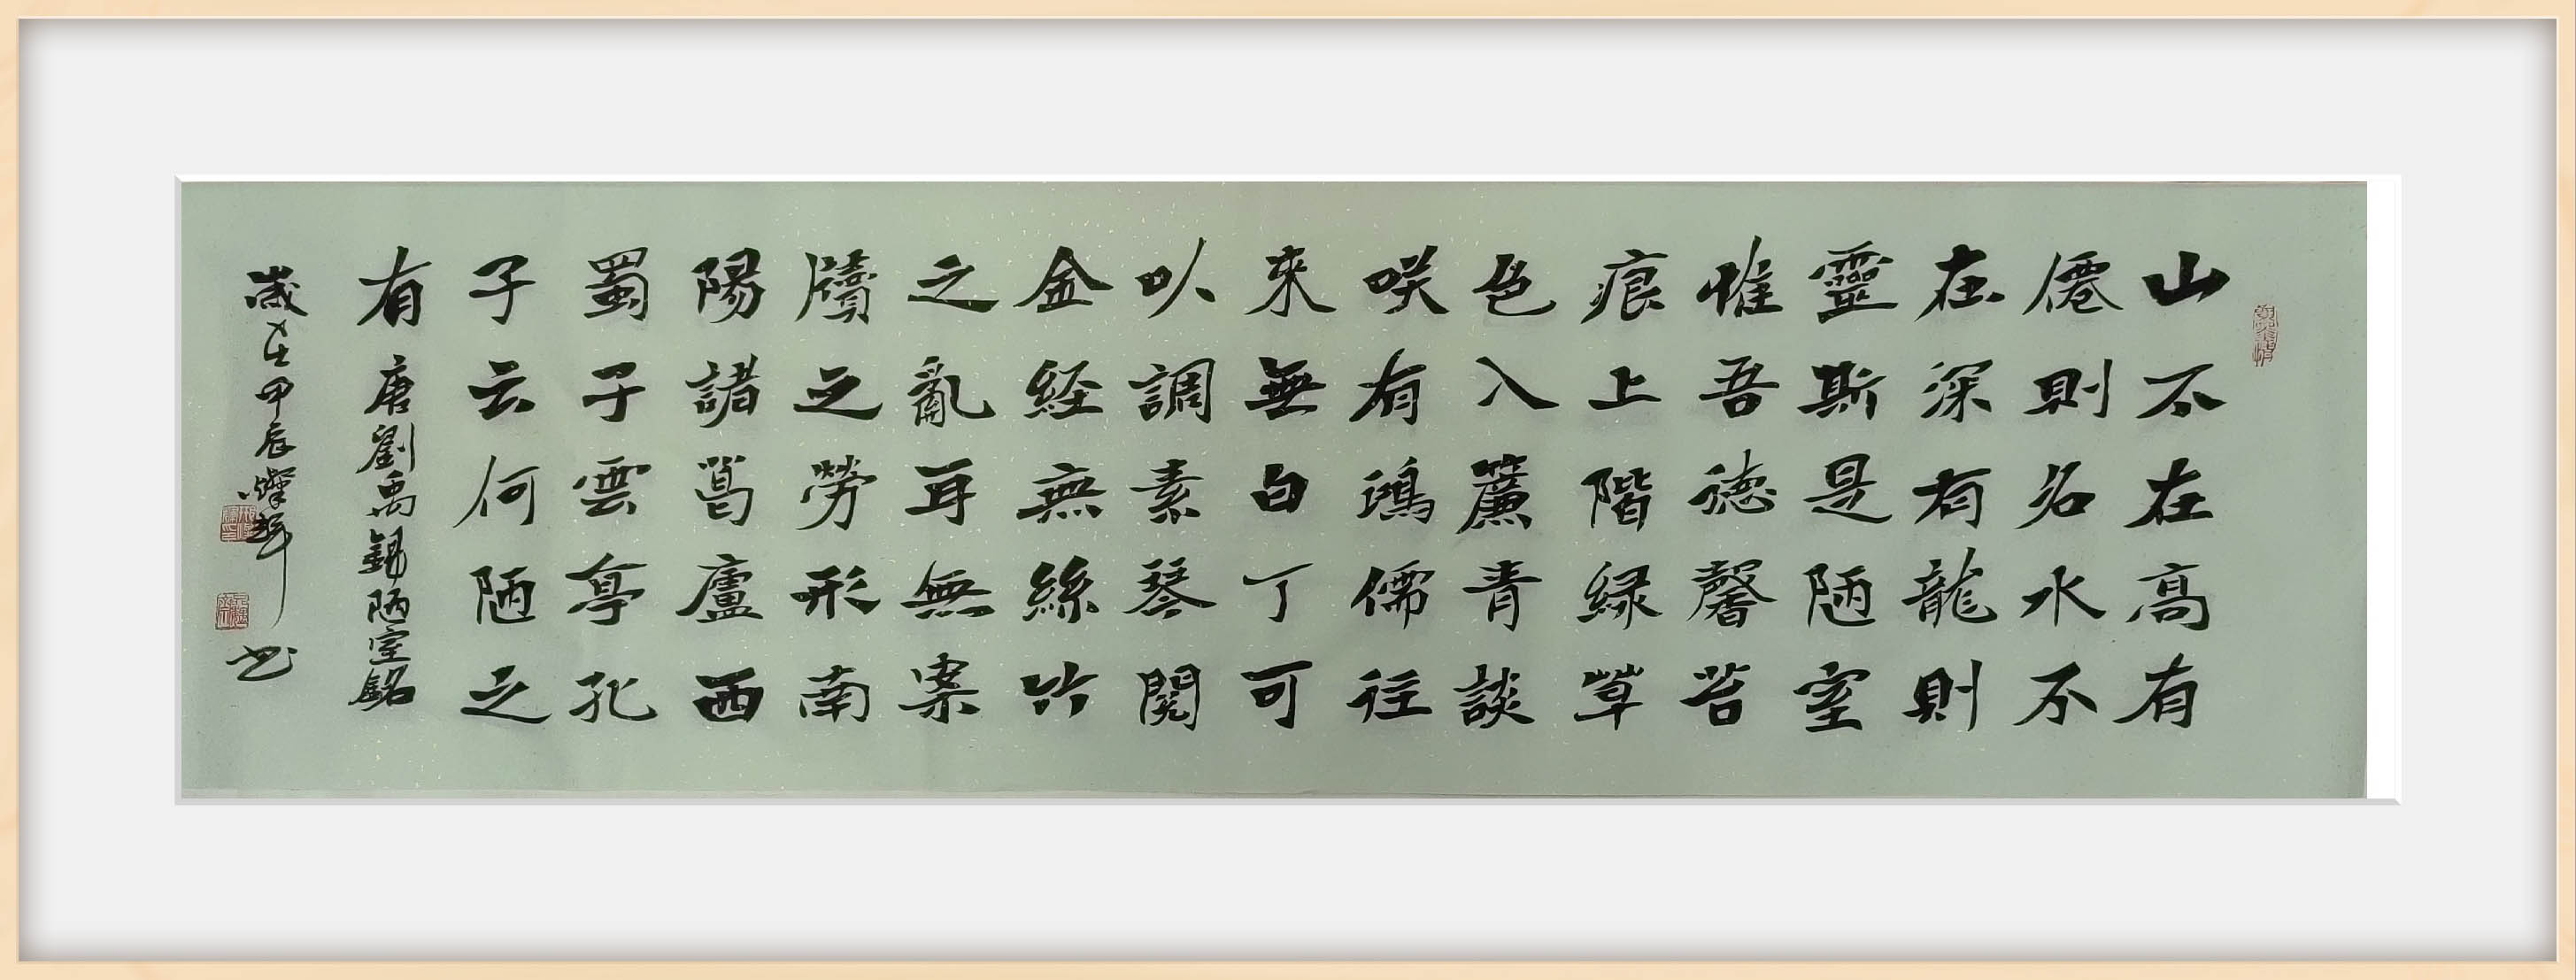 山不在高有
僊則名水不
在深有龍則
靈斯是陋室
惟吾德馨苔
痕上階緑草
色入簾青談
咲有鴻儒往
來無白丁可
㕥調素琴閱
金経無絲竹
之亂耳無案
牘之勞形南
陽諸葛廬西
蜀子雲亭孔
子云何陋之
有 唐劉禹錫陋室銘
歲在甲辰 书